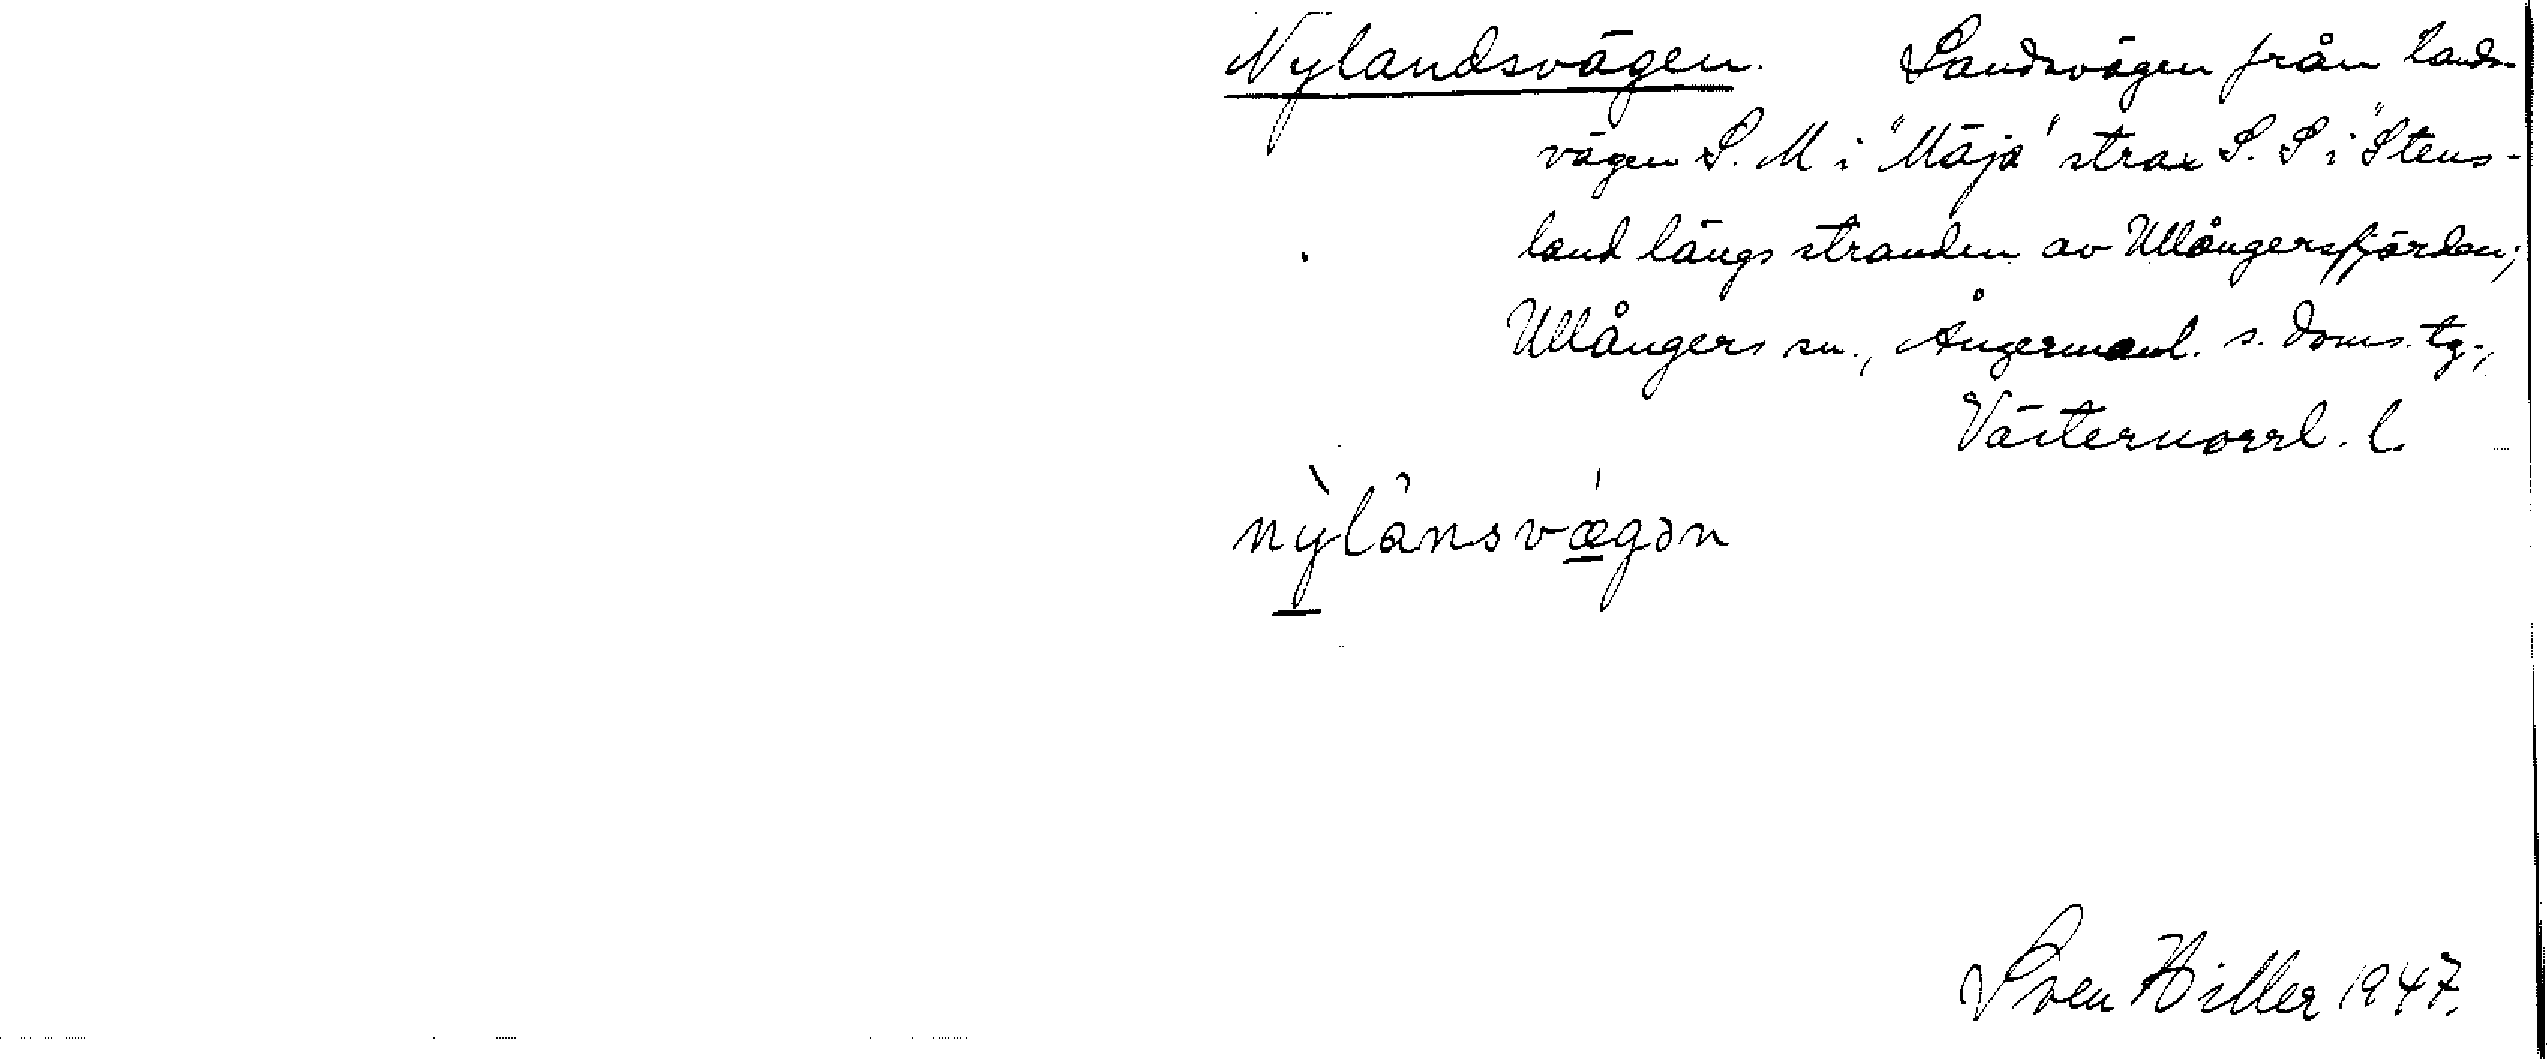 Nylandsvägen. Landsvägen från lands
vägen S. M i "Mäja" strax S. S i "Stens-
land längs stranden av Ullångersfjärden;
Ullångers sn., Ångermanl. s. doms. tg.,
Västernorrl. l.
nỳlânsvǽgən
Sven Hiller 1947.